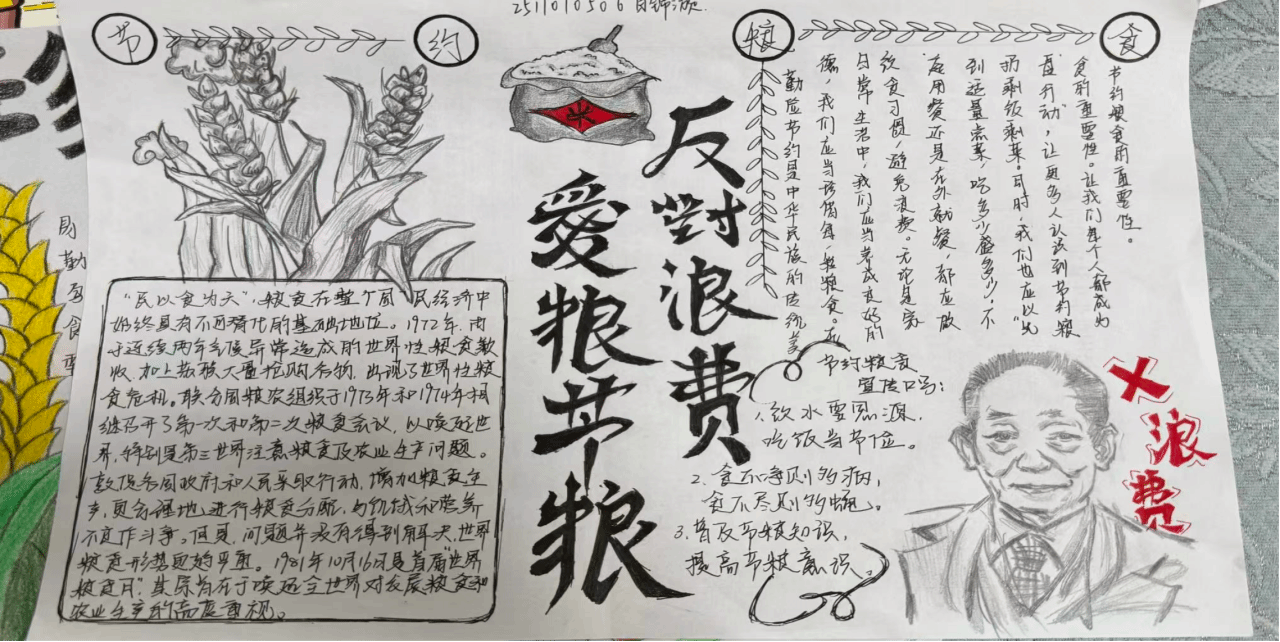 2511010506
节 约 粮 食
米
反對浪费
愛粮节粮
“民以食为天”，粮食在整个国民经济中
始终具有不可替代的基础地位。1972年，由
于连续两年气候异常造成的世界性粮食歉
收，加上苏联大量抢购谷物，出现了世界性粮
食危机。联合国粮农组织于1973年和1974年相
继召开了第一次和第二次粮食会议，以唤起世
界，特别是第三世界注意粮食及农业生产问题。
敦促各国政府和人民采取行动，增加粮食生
产，更合理地进行粮食分配，与饥饿和营养
不良作斗争。但是，问题并没有得到解决，世界
粮食形势更趋严重。1981年10月16日是首届“世界
粮食日”，其宗旨在于唤起全世界对发展粮食和
农业生产的高度重视。
勤俭节约是中华民族的传统美
德，我们应当珍惜每一粒粮食。在
日常生活中，我们应当养成良好的
饮食习惯，避免浪费。无论是家
庭用餐还是在外就餐，都应做
到适量点菜，吃多少盛多少，不
扔剩饭剩菜。同时，我们也应以“光
盘行动”，让更多人认识到节约粮
食的重要性。让我们每个人都成为
节约粮食的重要性。
节约粮食
宣传口号：
1.饮水要思源，
吃饭当节俭。
2.食不净则多病，
食不尽则多祸。
3.普及节粮知识，
提高节粮意识。
浪费
周
勤
食